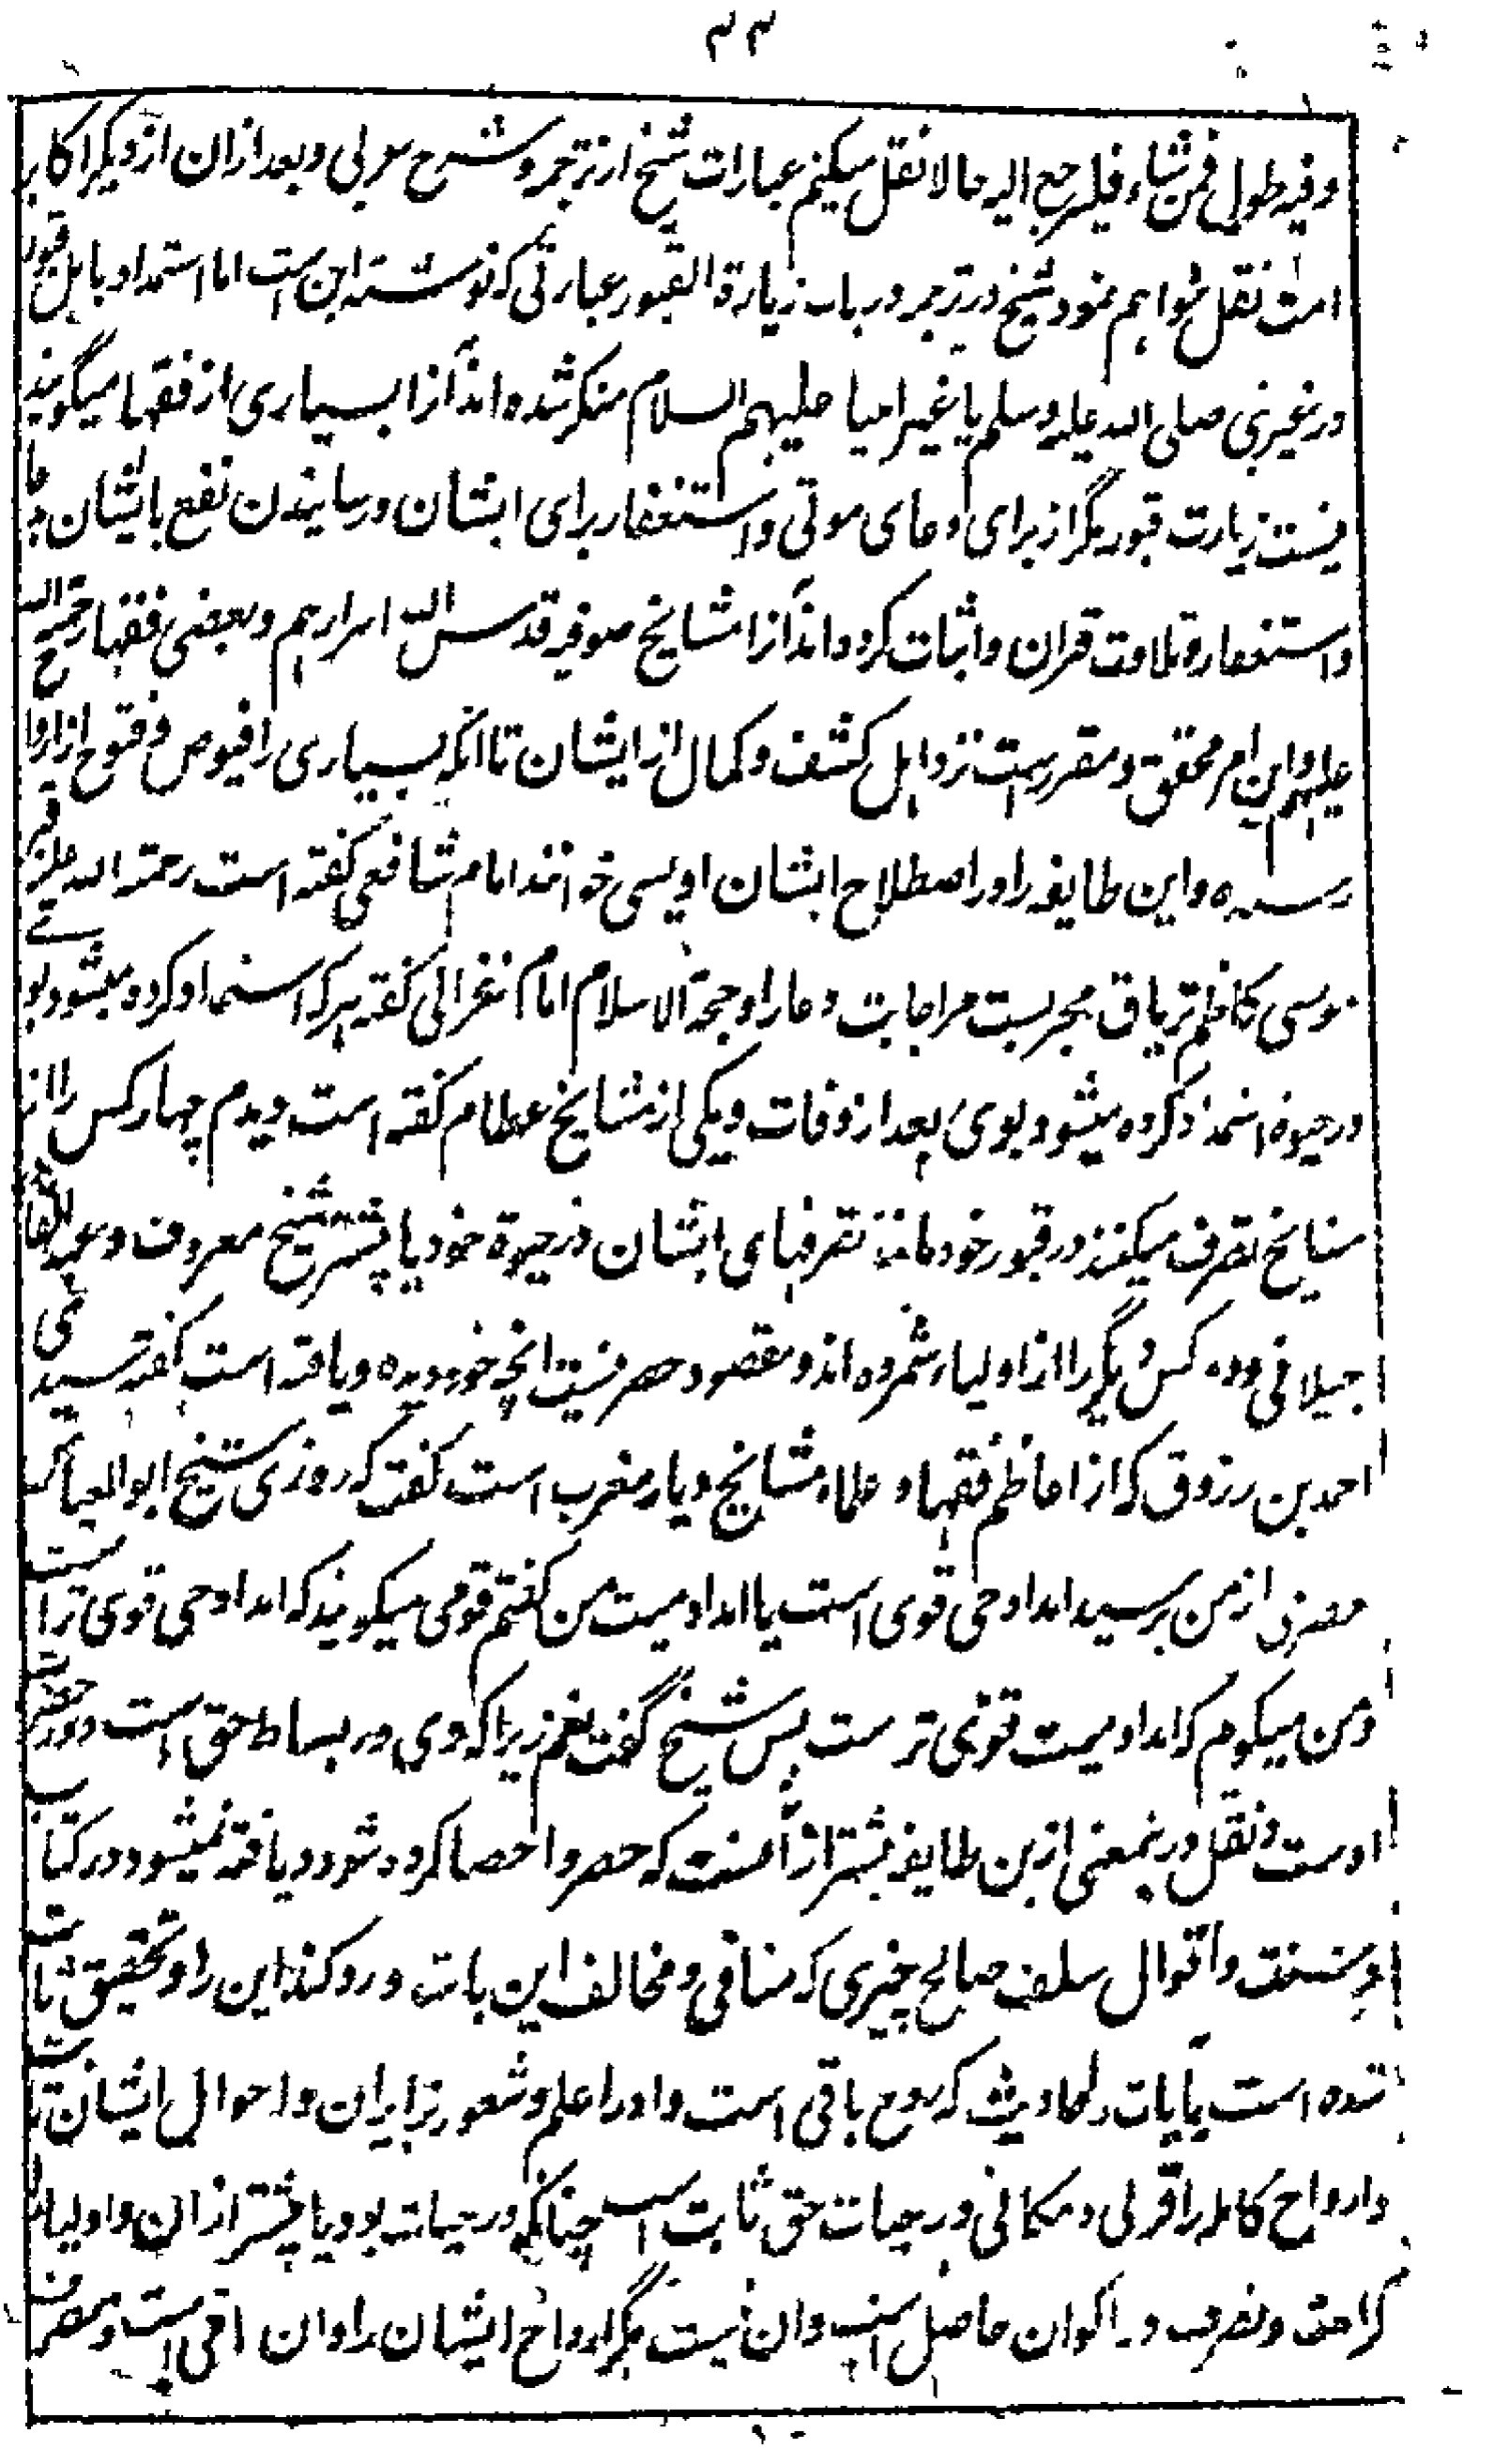 ۳۳
وفیه طول فمن شاء فلیرجع الیه حالا نقل میکنم عبارات شیخ از ترجمه و شرح عربی و بعد ازان از دیگر اکابر
امت نقل خواهم نمود شیخ در ترجمه در باب زیارة القبور عبارتی که نوشته این ست اما استمداد باهل قبور
در غیر نبی صلی الله علیه وسلم یا غیر انبیا علیهم السلام منکر شده اند آنرا بسیاری از فقها میگویند
نیست زیارت قبور مگر از برای دعای موتی و استغفار برای ایشان و رسانیدن نفع بایشان بدعا
و استغفار و تلاوت قران و اثبات کرده اند آنرا مشایخ صوفیه قدس الله اسرارهم و بعضی فقها رحمة الله
علیهم و این امر محقق و مقررست نزد اهل کشف و کمال از ایشان تا آنکه بسیاری را فیوض و فتوح از ارواح
رسیده و این طایفه را در اصطلاح ایشان اویسی خوانند امام شافعی گفته است رحمة الله علیه قبر
موسی کاظم تریاق مجربست مر اجابت دعا را و حجة الاسلام امام غزالی گفته هر که استمداد کرده میشود بوی
در حیوة استمداد کرده میشود بوی بعد از وفات و یکی از مشایخ عظام گفته است دیدم چهار کس را از
مشایخ تصرف میکنند در قبور خود مانند تصرفهای ایشان در حیوة خود یا بیشتر شیخ معروف و عبدالقادر
جیلانی و دو کس دیگر را از اولیا شمرده اند و مقصود حصر نیست انچه خود دیده و یافته است گفته سیدی
احمد بن رزوق که از اعاظم فقها و علماء مشایخ دیار مغرب است گفت که روزی شیخ ابو العباس
حضرمی از من پرسید امداد حی قوی است یا امداد میت من گفتم قومی میگویند که امداد حی قوی تر است
و من میگویم که امداد میت قوی تر ست پس شیخ گفت نعم زیرا که وی در بساط حق است و در حضرت
اوست و نقل درینمعنی ازین طایفه بیشتر ازانست که حصر و احصا کرده شود و یافته نمیشود در کتاب
و سنت و اقوال سلف صالح چیزی که منافی و مخالف این باشد و رد کند این را و تحقیق ثابت
شده است بآیات و احادیث که روح باقی است و او را علم و شعور بزایران و احوال ایشان ثابت
و ارواح کامله را قربی و مکانی در جناب حق ثابت است چنانکه در حیات بود یا بیشتر ازان و اولیا را
کرامت و تصرف در اکوان حاصل است و ان نیست مگر ارواح ایشان را و ان باقی است و متصرف